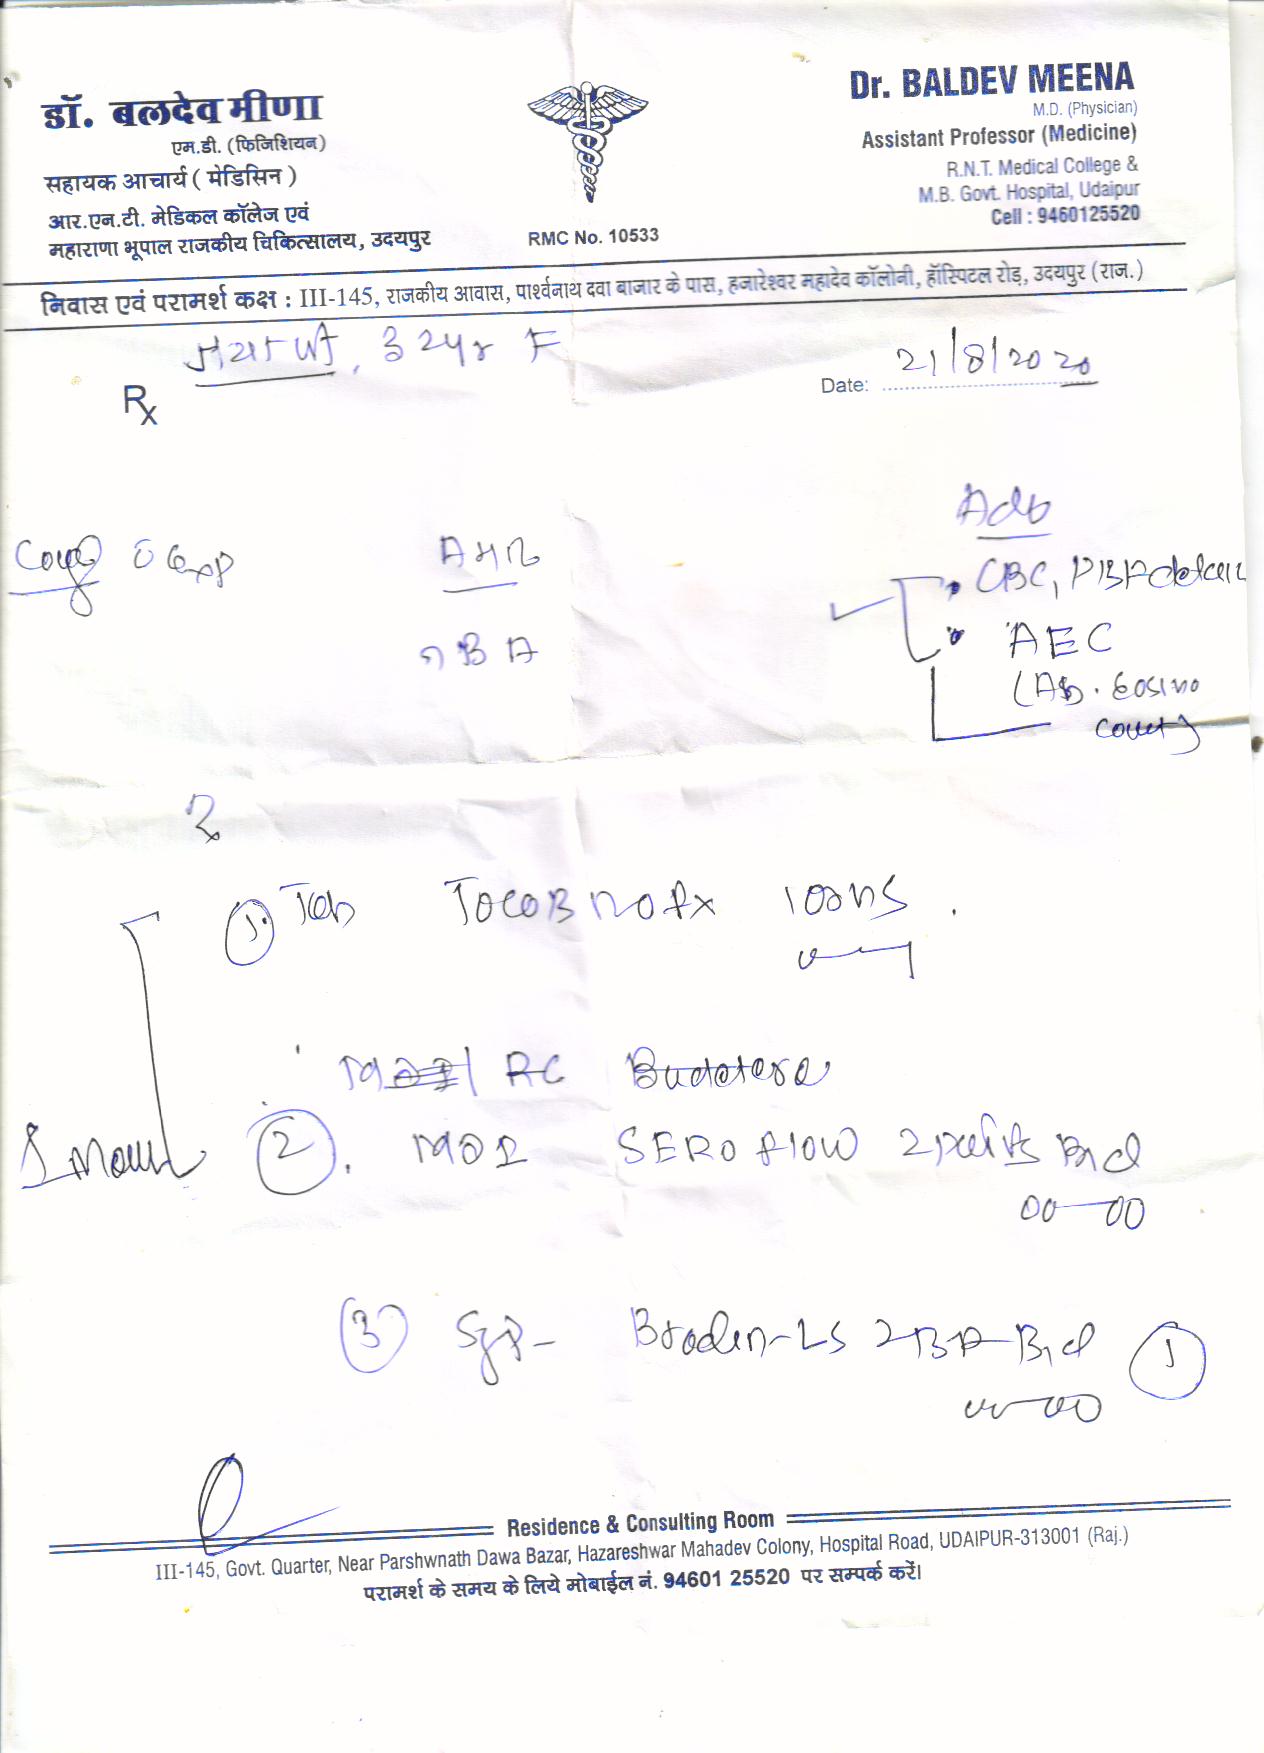 डॉ. बलदेव मीणा
एम.डी. (फिजिशियन)
सहायक आचार्य ( मेडिसिन )
आर.एन.टी. मेडिकल कॉलेज एवं
महाराणा भूपाल राजकीय चिकित्सालय, उदयपुर
RMC No. 10533
Dr. BALDEV MEENA
M.D. (Physician)
Assistant Professor (Medicine)
R.N.T. Medical College &
M.B. Govt. Hospital, Udaipur
Cell : 9460125520
निवास एवं परामर्श कक्ष : III-145, राजकीय आवास, पार्श्वनाथ दवा बाजार के पास, हजारेश्वर महादेव कॉलोनी, हॉस्पिटल रोड़, उदयपुर (राज.)
32yr F
Date: 21/8/2020
Rx
Adv
Coug c Exp
CBC, PBF
AEC
(Ab. Eosino
count)
1. Tab 100
RC
2. MDI SEROFLOW 2 puffs Bid
00 — 00
3 Syp- LS Bid 1
Residence & Consulting Room
III-145, Govt. Quarter, Near Parshwnath Dawa Bazar, Hazareshwar Mahadev Colony, Hospital Road, UDAIPUR-313001 (Raj.)
परामर्श के समय के लिये मोबाईल नं. 94601 25520 पर सम्पर्क करें।